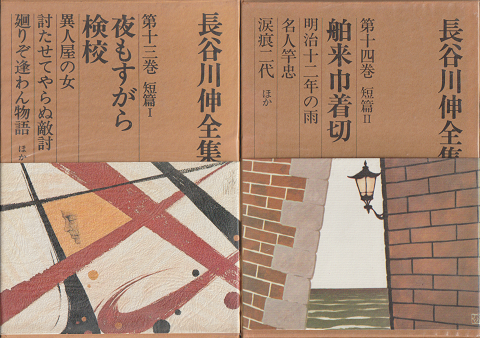 長谷川伸全集
第十三巻 短篇Ⅰ
夜もすがら
検校
異人屋の女
討たせてやらぬ敵討
廻りぞ逢わん物語 ほか
長谷川伸全集
第十四巻 短篇Ⅱ
舶来巾着切
明治十二年の雨
名人竿忠
涙痕二代 ほか